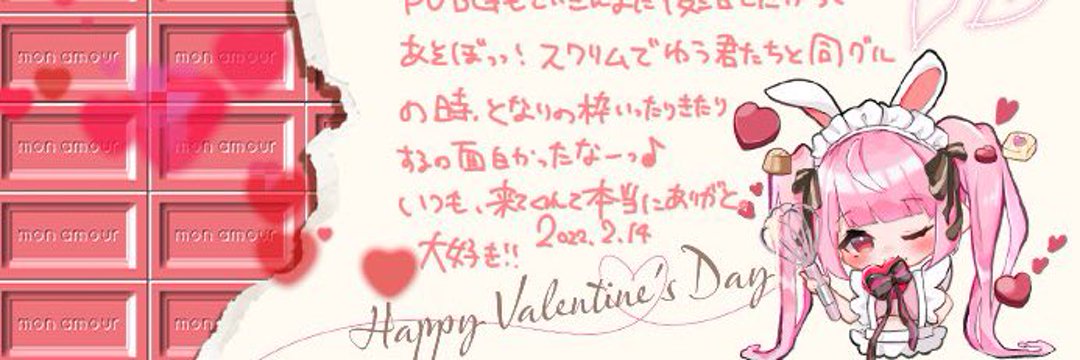 あそぼっっ！スクリムでゆう君たちと同グル
の時、となりの枠いったりきたり
するの面白かったなーっ♪
いつも、来てくれて本当にありがと。
大好きも!!
2022.2.14
Happy Valentine's Day
mon amour
mon amour
mon amour
mon amour
mon amour
mon amour
mon amour
mon